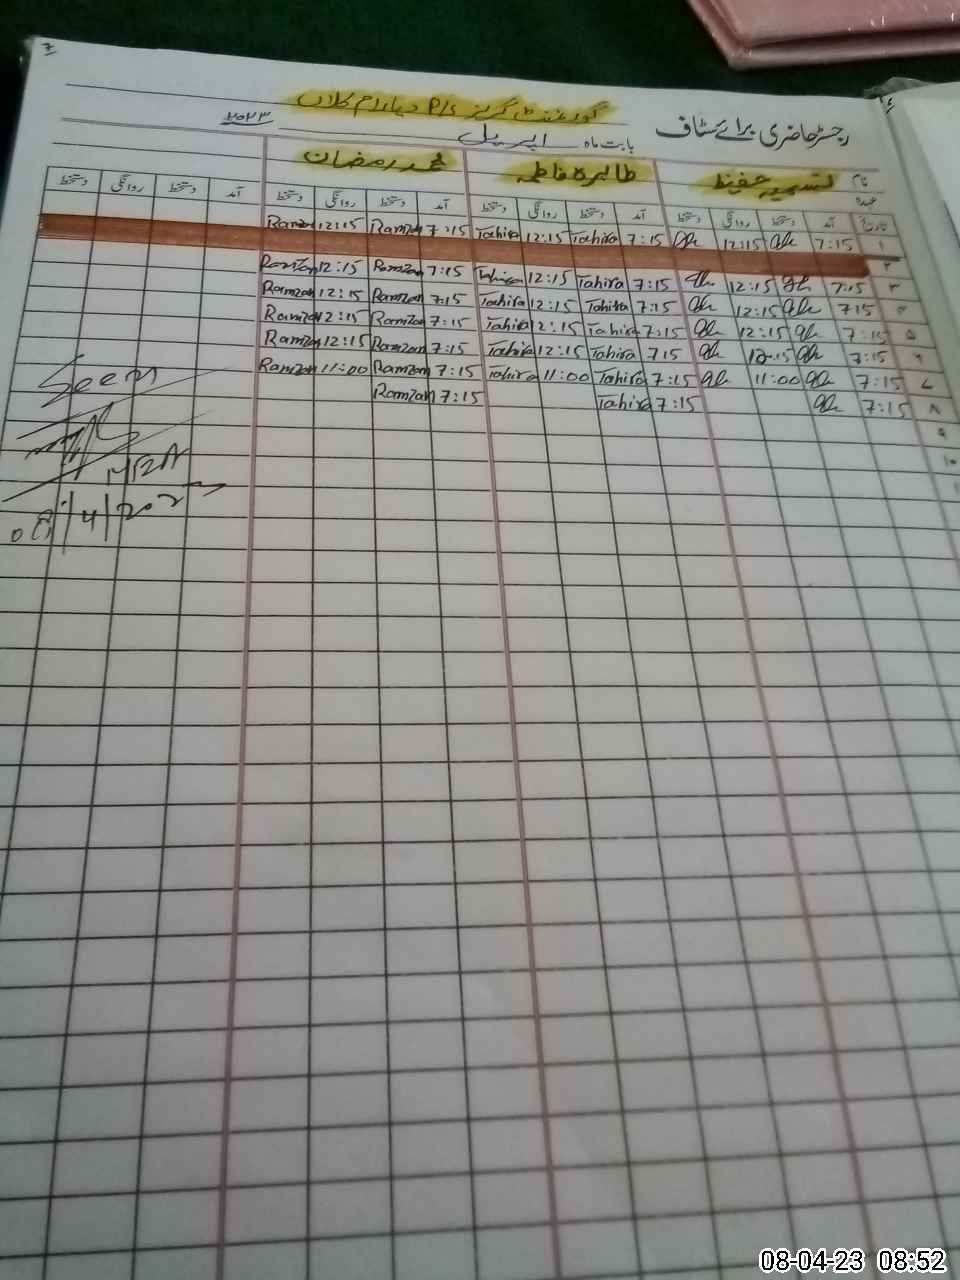 گورنمنٹ گرلز P/S دیارام کلاں
رجسٹر حاضری برائے سٹاف بابت ماہ اپریل ۲۰۲۳
نام تسمیہ حفیظ طاہرہ فاطمہ محمد رمضان
عہدہ
تاریخ آمد دستخط روانگی دستخط آمد دستخط روانگی دستخط آمد دستخط روانگی دستخط آمد دستخط روانگی دستخط
۱ 7:15 12:15 7:15 Tahira 12:15 Tahira 7:15 Ramzan 12:15 Ramzan
۲
۳ 7:15 12:15 7:15 Tahira 12:15 Tahira 7:15 Ramzan 12:15 Ramzan
۴ 715 12:15 7:15 Tahira 12:15 Tahira 7:15 Ramzan 12:15 Ramzan
۵ 7:15 12:15 7:15 Tahira 12:15 Tahira 7:15 Ramzan 12:15 Ramzan
۶ 7:15 12:15 715 Tahira 12:15 Tahira 7:15 Ramzan 12:15 Ramzan
۷ 7:15 11:00 7:15 Tahira 11:00 Tahira 7:15 Ramzan 11:00 Ramzan
۸ 7:15 7:15 Tahira 7:15 Ramzan
۹
۱۰
Seen
MEA
08/4/202
08-04-23 08:52